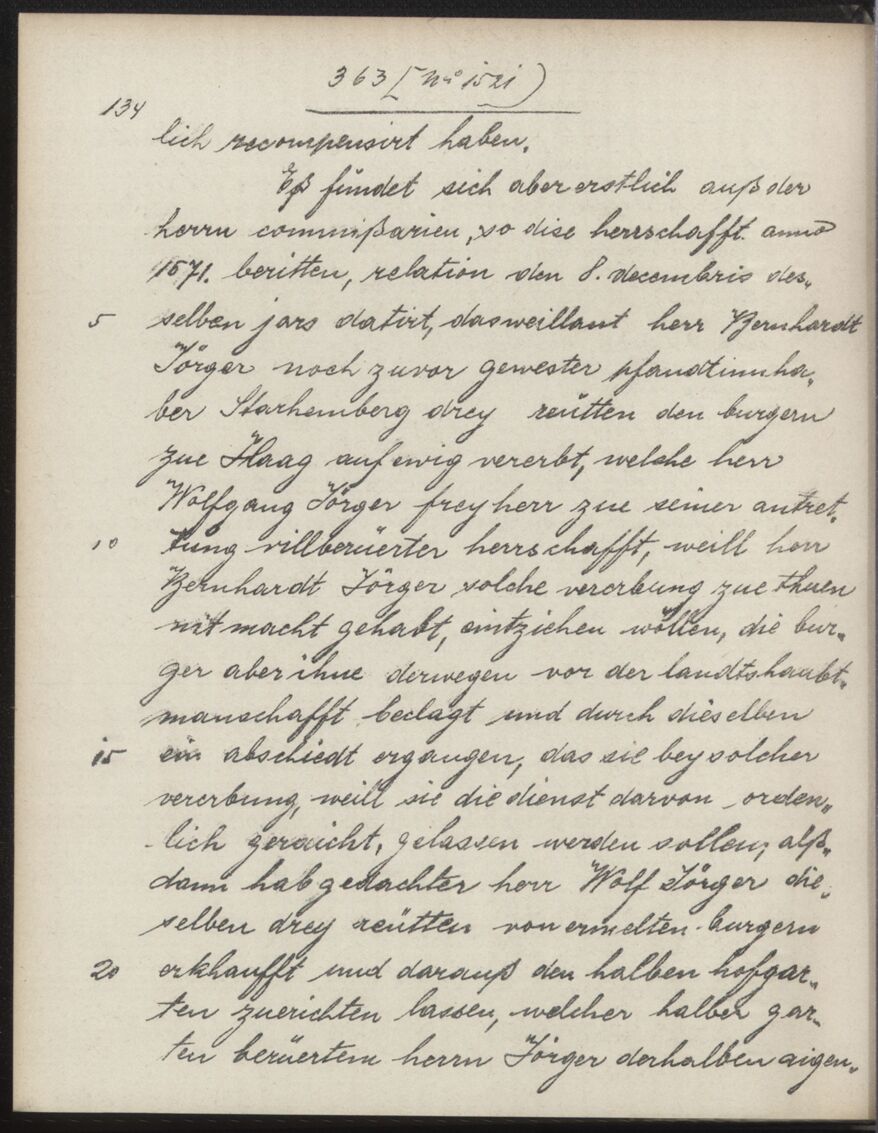 363 [Nº 1521)
134
lich recompensirt haben.
Eß fündet sich aber erstlich auß der
herrn commißarien, so dise herrschafft anno
1571. beritten, relation den 8. decembris des„
5 selben jars datirt, das weillant herr Bernhardt
Jörger noch zuvor gewester pfandtinnha„
ber Starhemberg drey reütten den burgern
zue Haag auf ewig vererbt, welche herr
Wolfgang Jörger freyherr zue seiner antret„
10 tung villberüerter herrschafft, weill herr
Bernhardt Jörger solche vererbung zue thuen
nit macht gehabt, eintziehen wöllen, die bur„
ger aber ihne derwegen vor der landtshaubt„
manschafft beclagt und durch dieselben
15 ein abschiedt ergangen, das sie bey solcher
vererbung, weill sie die dienst darvon orden„
lich geraicht, gelassen werden sollen; alß„
dann hab gedachter herr Wolf Jörger die„
selben drey reütten von ermelten burgern
20 erkhaufft und darauß den halben hofgar„
ten zuerichten lassen, welcher halber gar„
ten berüertem herrn Jörger derhalben aigen„